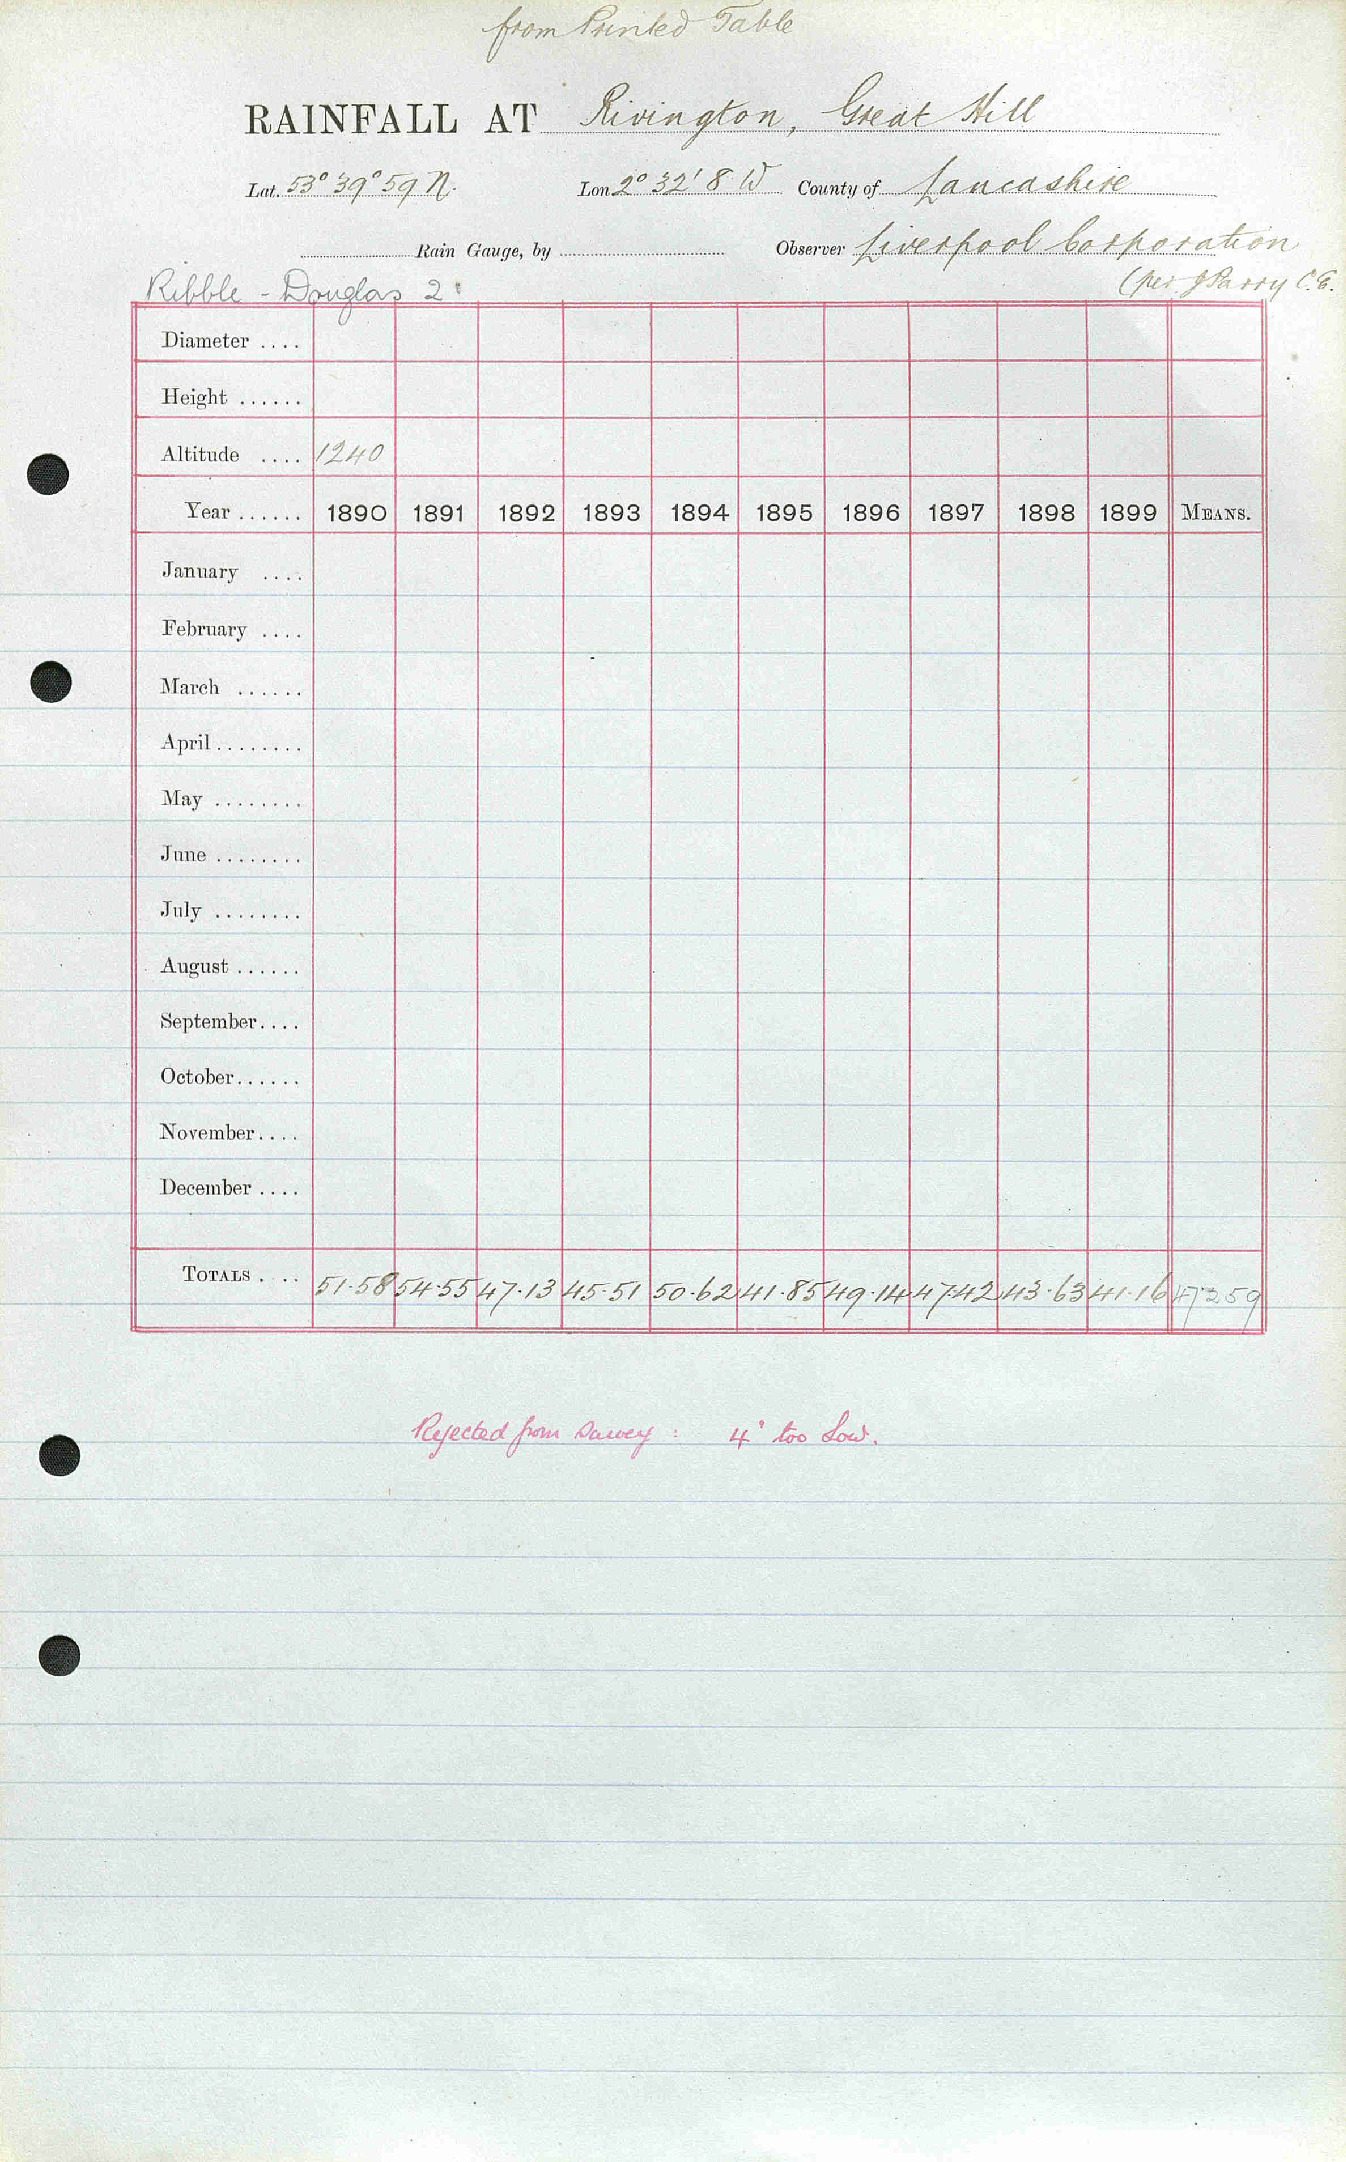 from Printed Table
RAINFALL AT Rivington, Great Hill
Lat. 53° 39° 59 N. Lon 2° 32' 8 W County of Lancashire
Rain Gauge, by Observer Liverpool Corporation
Ribble - Douglas 2 (per J Parry C.E.
Diameter ....
Height ......
Altitude .... 1240
Year ...... 1890 1891 1892 1893 1894 1895 1896 1897 1898 1899 MEANS.
January ....
February ....
March ......
April ........
May ........
June ........
July ........
August ......
September ....
October ......
November ....
December ....
TOTALS .... 51.58 54.55 47.13 45.51 50.62 41.85 49.14 47.42 43.63 41.16 47.259
Rejected from Survey : 4" too low.